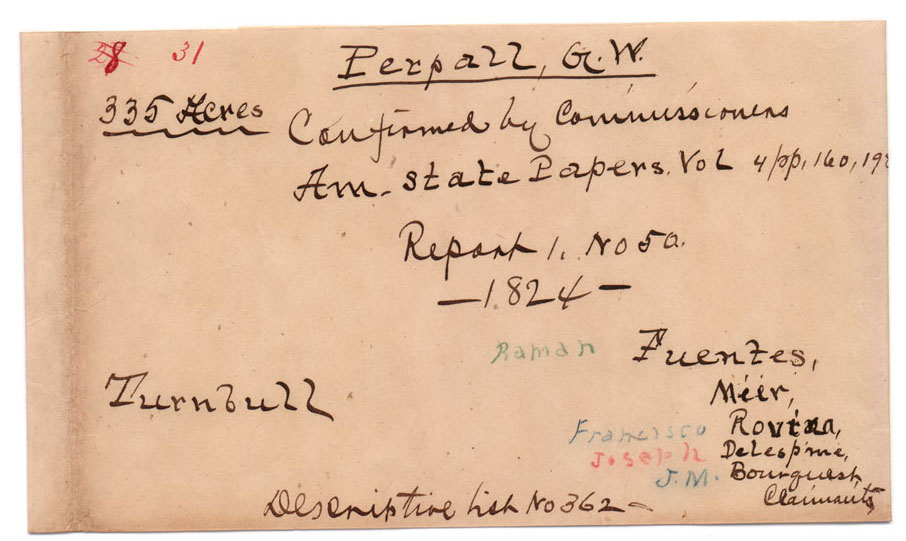 28 31
Perpall, G.W.
335 Acres
Confirmed by Commissioners
Am. State Papers. Vol 4/pp, 160, 19
Report 1. No 50.
—1824—
Raman Fuentes,
Meir,
Turnbull
Francisco Rovira,
Joseph Delespine,
J.M. Bourquest
Claimants
Descriptive List No 362-